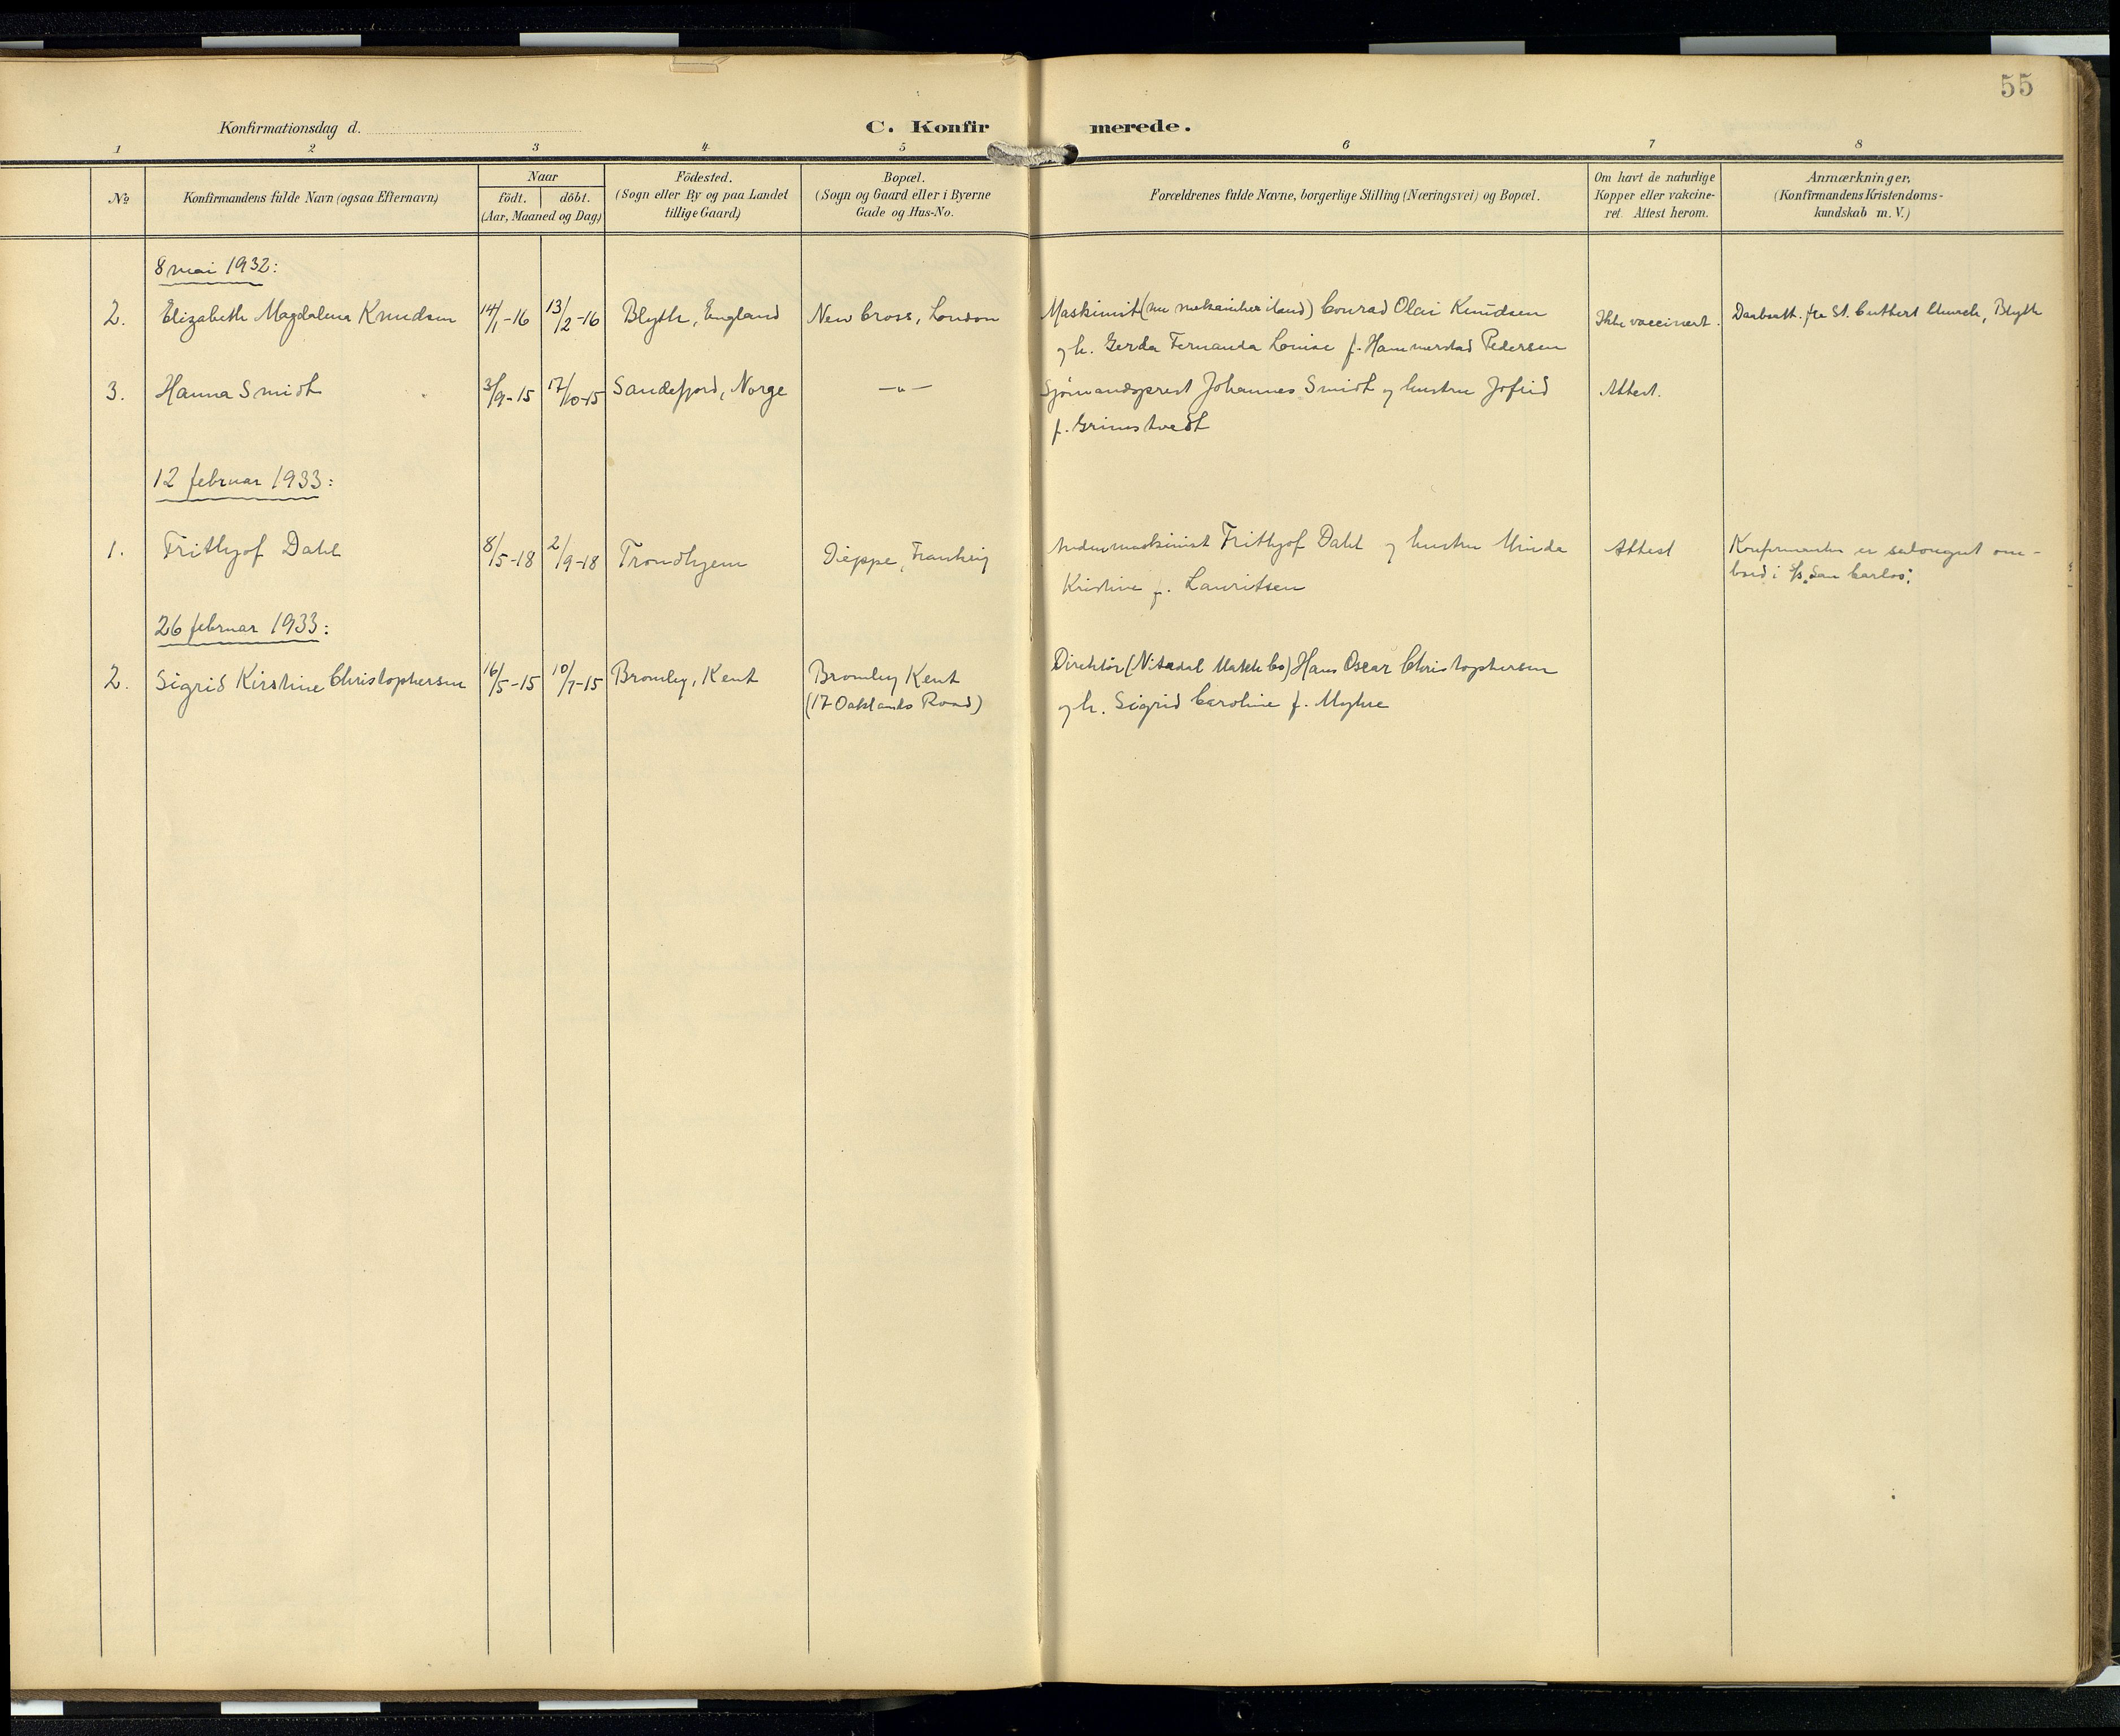 55
Konfirmationsdag d.
C. Konfirmerede.
1 2 3 4 5 6 7 8
No
Konfirmandens fulde Navn (ogsaa Efternavn)
Naar
födt. döbt.
(Aar, Maaned og Dag)
Födested.
(Sogn eller By og paa Landet
tillige Gaard)
Bopæl.
(Sogn og Gaard eller i Byerne
Gade og Hus-No.
Forældrenes fulde Navne, borgerlige Stilling (Næringsvei) og Bopæl.
Om havt de naturlige
Kopper eller vakcine-
ret. Attest herom.
Anmærkninger.
(Konfirmandens Kristendoms-
kundskab m. V.)
8 mai 1932:
2. Elizabeth Magdalena Knudsen 14/1-16 13/2-16 Blyth, England New Cross, London Maskinist (nu mekaniker iland) Conrad Olai Knudsen Ikke vaccinert. Daabsatt. fra St. Cuttert Church, Blyth
og h. Gerda Fernanda Louise f. Hammerstad Pedersen
3. Hanna Smidt 3/9-15 17/10-15 Sandefjord, Norge —"— Sjømandsprest Johannes Smidt og hustru Jofrid Attest.
f. Grimstvedt
12 februar 1933:
1. Frithjof Dahl 8/5-18 2/9-18 Trondhjem Dieppe, Frankrig maskinist Frithjof Dahl og hustru Minda Attest Konfirmanten er salongut om-
Kristine f. Lauritsen
bord i S/S "San Carlos".
26 februar 1933:
2. Sigrid Kirstine Christophersen 16/5-15 10/7-15 Bromley, Kent Bromley Kent Direktør (Nitedal Match Co) Hans Oscar Christophersen
(17 Oaklands Road) og h. Sigrid Caroline f. Myhre